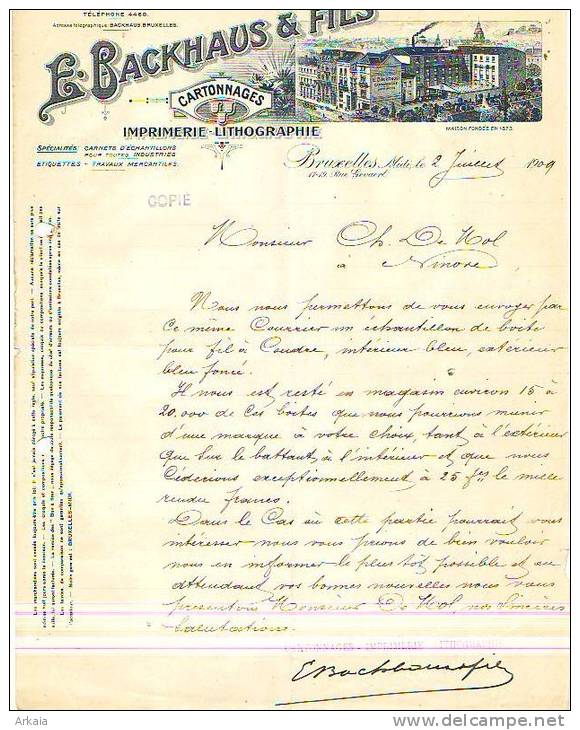 TÉLÉPHONE 4460.
Adresse télégraphique: BACKHAUS. BRUXELLES.
E. BACKHAUS & FILS
CARTONNAGES
IMPRIMERIE-LITHOGRAPHIE
MAISON FONDÉE EN 1873.
SPÉCIALITÉS: CARNETS D'ÉCHANTILLONS
POUR TOUTES INDUSTRIES
ETIQUETTES - TRAVAUX MERCANTILES.
Bruxelles, Midi, le 2 Juillet 1909
17-19, Rue Gevaert
COPIE
Monsieur Ch. De Mol
à Ninove
Nous nous permettons de vous envoyer par
ce même Courrier un échantillon de boîte
pour fil à Coudre, intérieur bleu, extérieur
bleu foncé.
Il nous est resté en magasin environ 15 à
20.000 de ces boîtes que nous pourrions munir
d'une marque à votre choix, tant à l'extérieur
que sur le battant à l'intérieur et que nous
Céderions exceptionnellement à 25 fcs le mille
rendu franco.
Dans le Cas où cette partie pourrait vous
intéresser nous vous prions de bien vouloir
nous en informer le plus tôt possible et en
attendant vos bonnes nouvelles nous vous
présentons Monsieur De Mol, nos sincères
salutations.
CARTONNAGES - IMPRIMERIE - LITHOGRAPHIE
E Backhaus & fils
Arkaia
delcampe.net